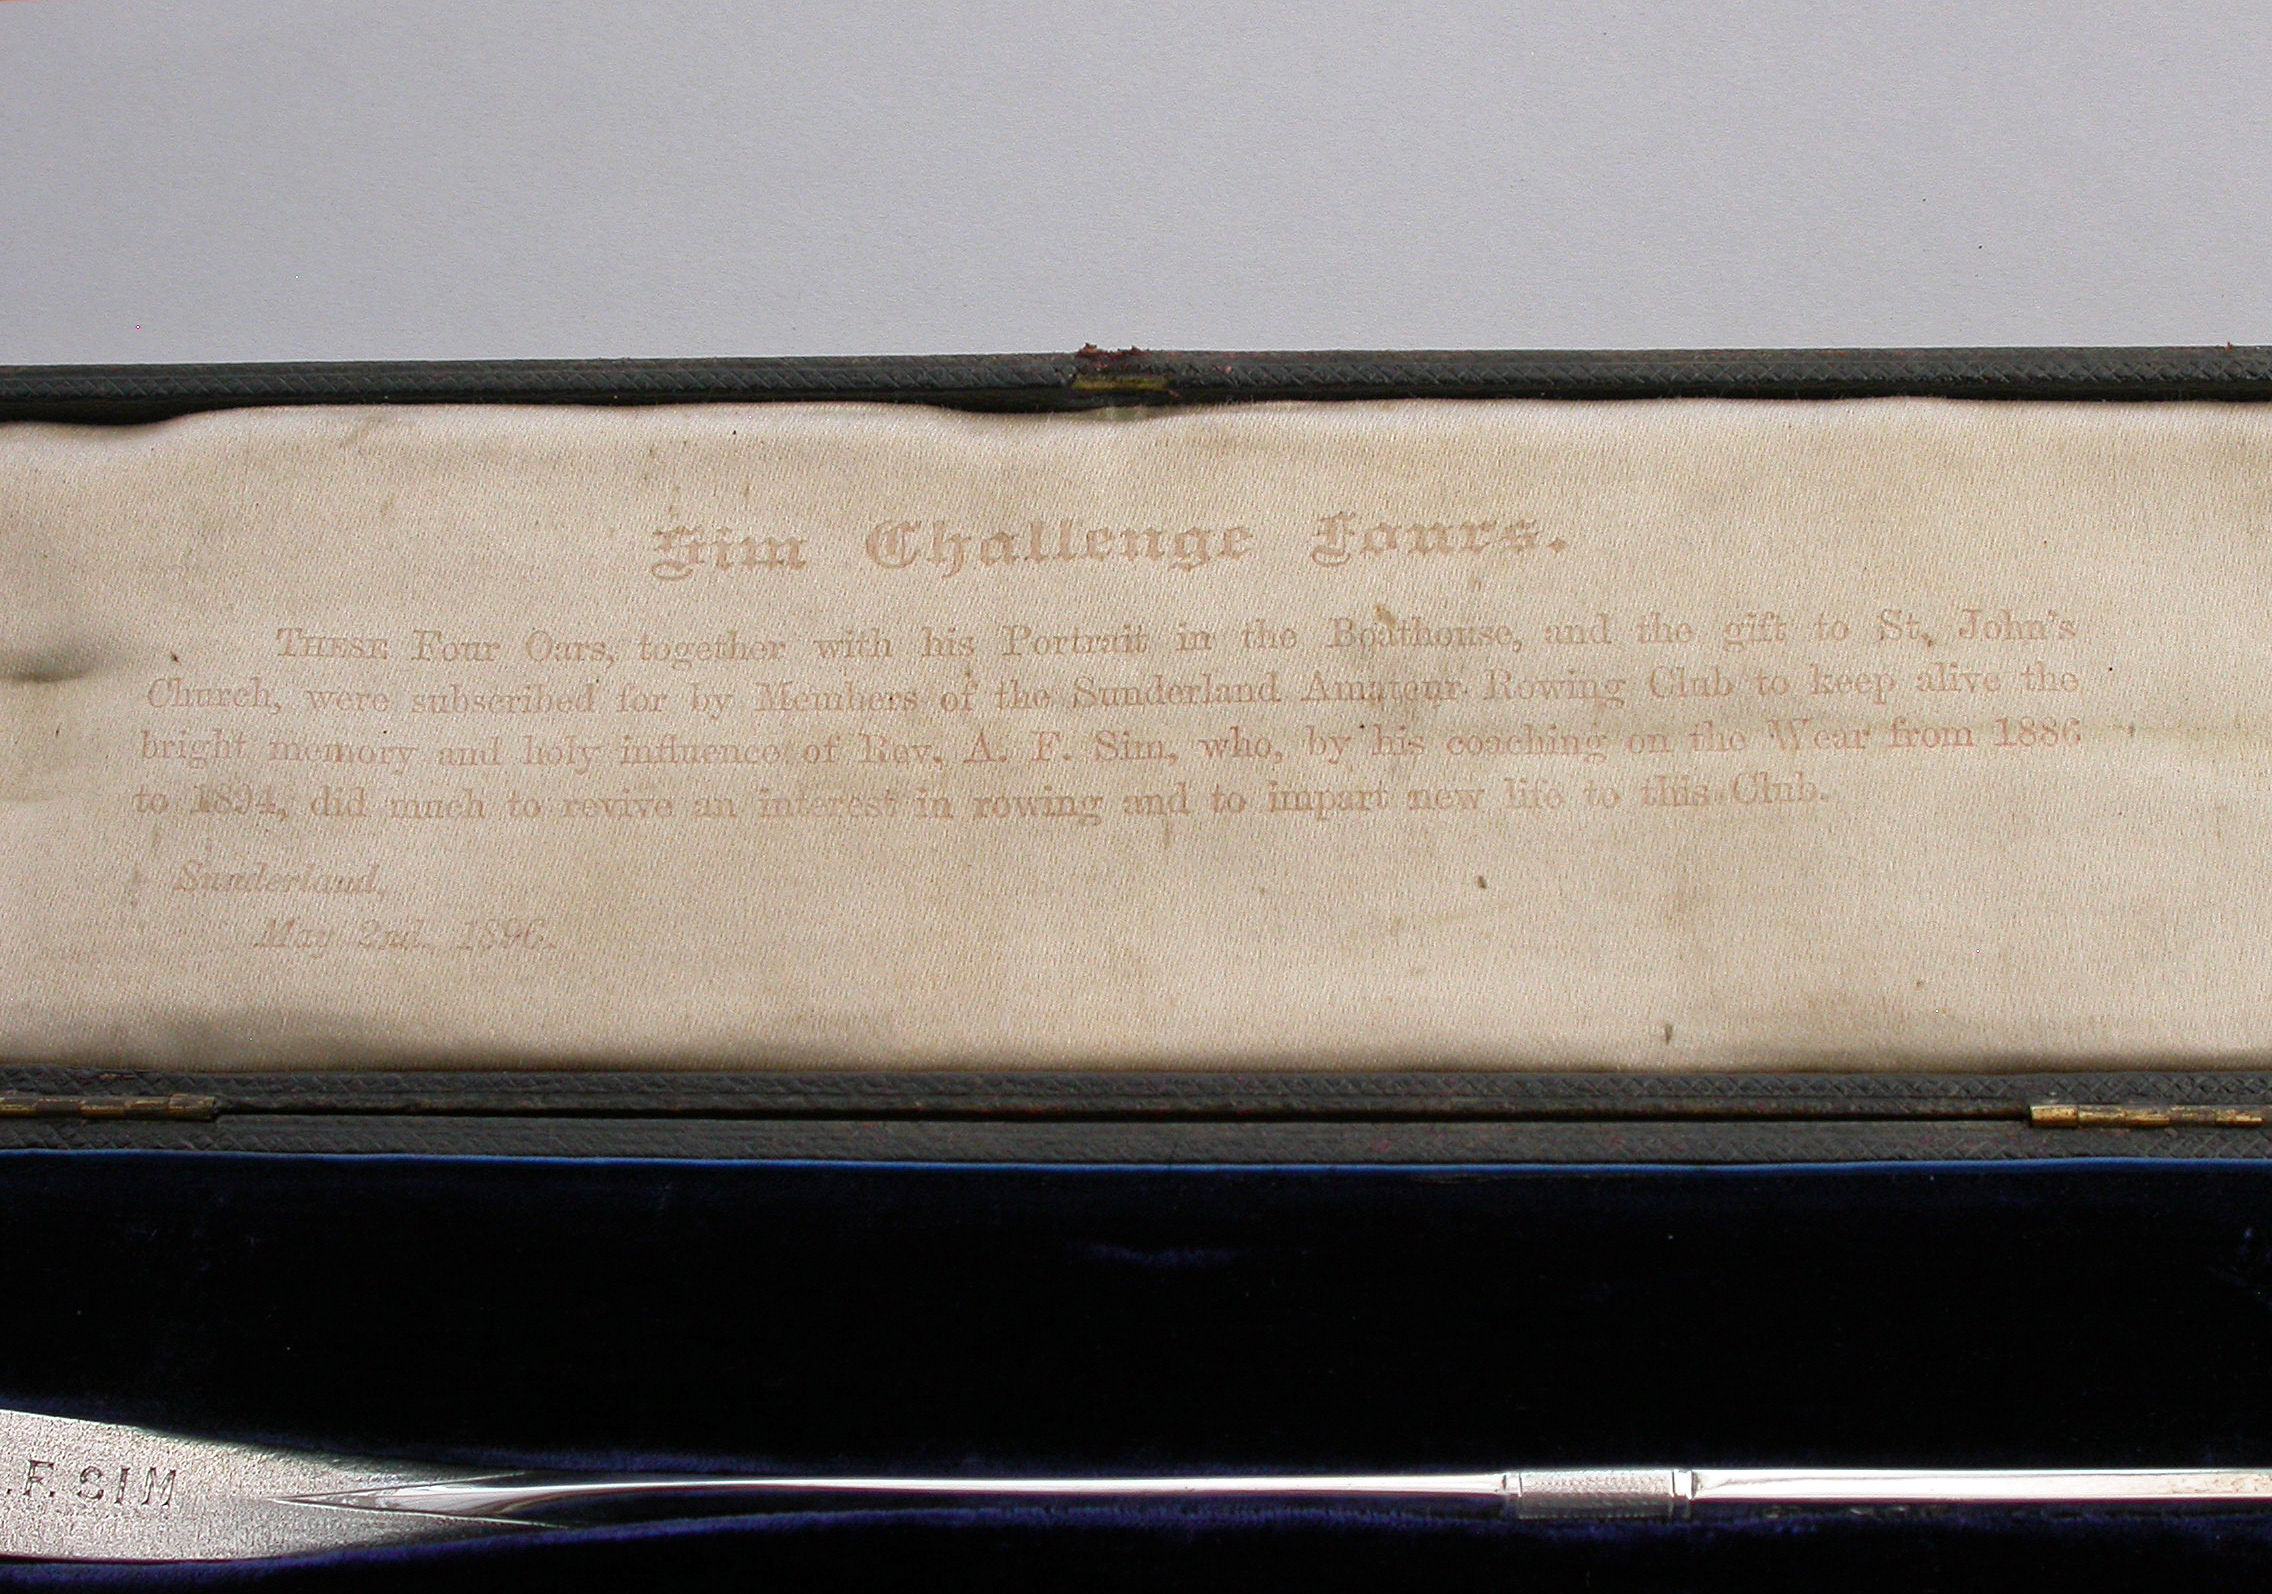 Sim Challenge Fours.
THESE Four Oars, together with his Portrait in the Boathouse, and the gift to St. John's
Church, were subscribed for by Members of the Sunderland Amateur Rowing Club to keep alive the
bright memory and holy influence of Rev. A. F. Sim, who, by his coaching on the Wear from 1886
to 1894, did much to revive an interest in rowing and to impart new life to this Club.
Sunderland,
May 2nd, 1896.
.F. SIM